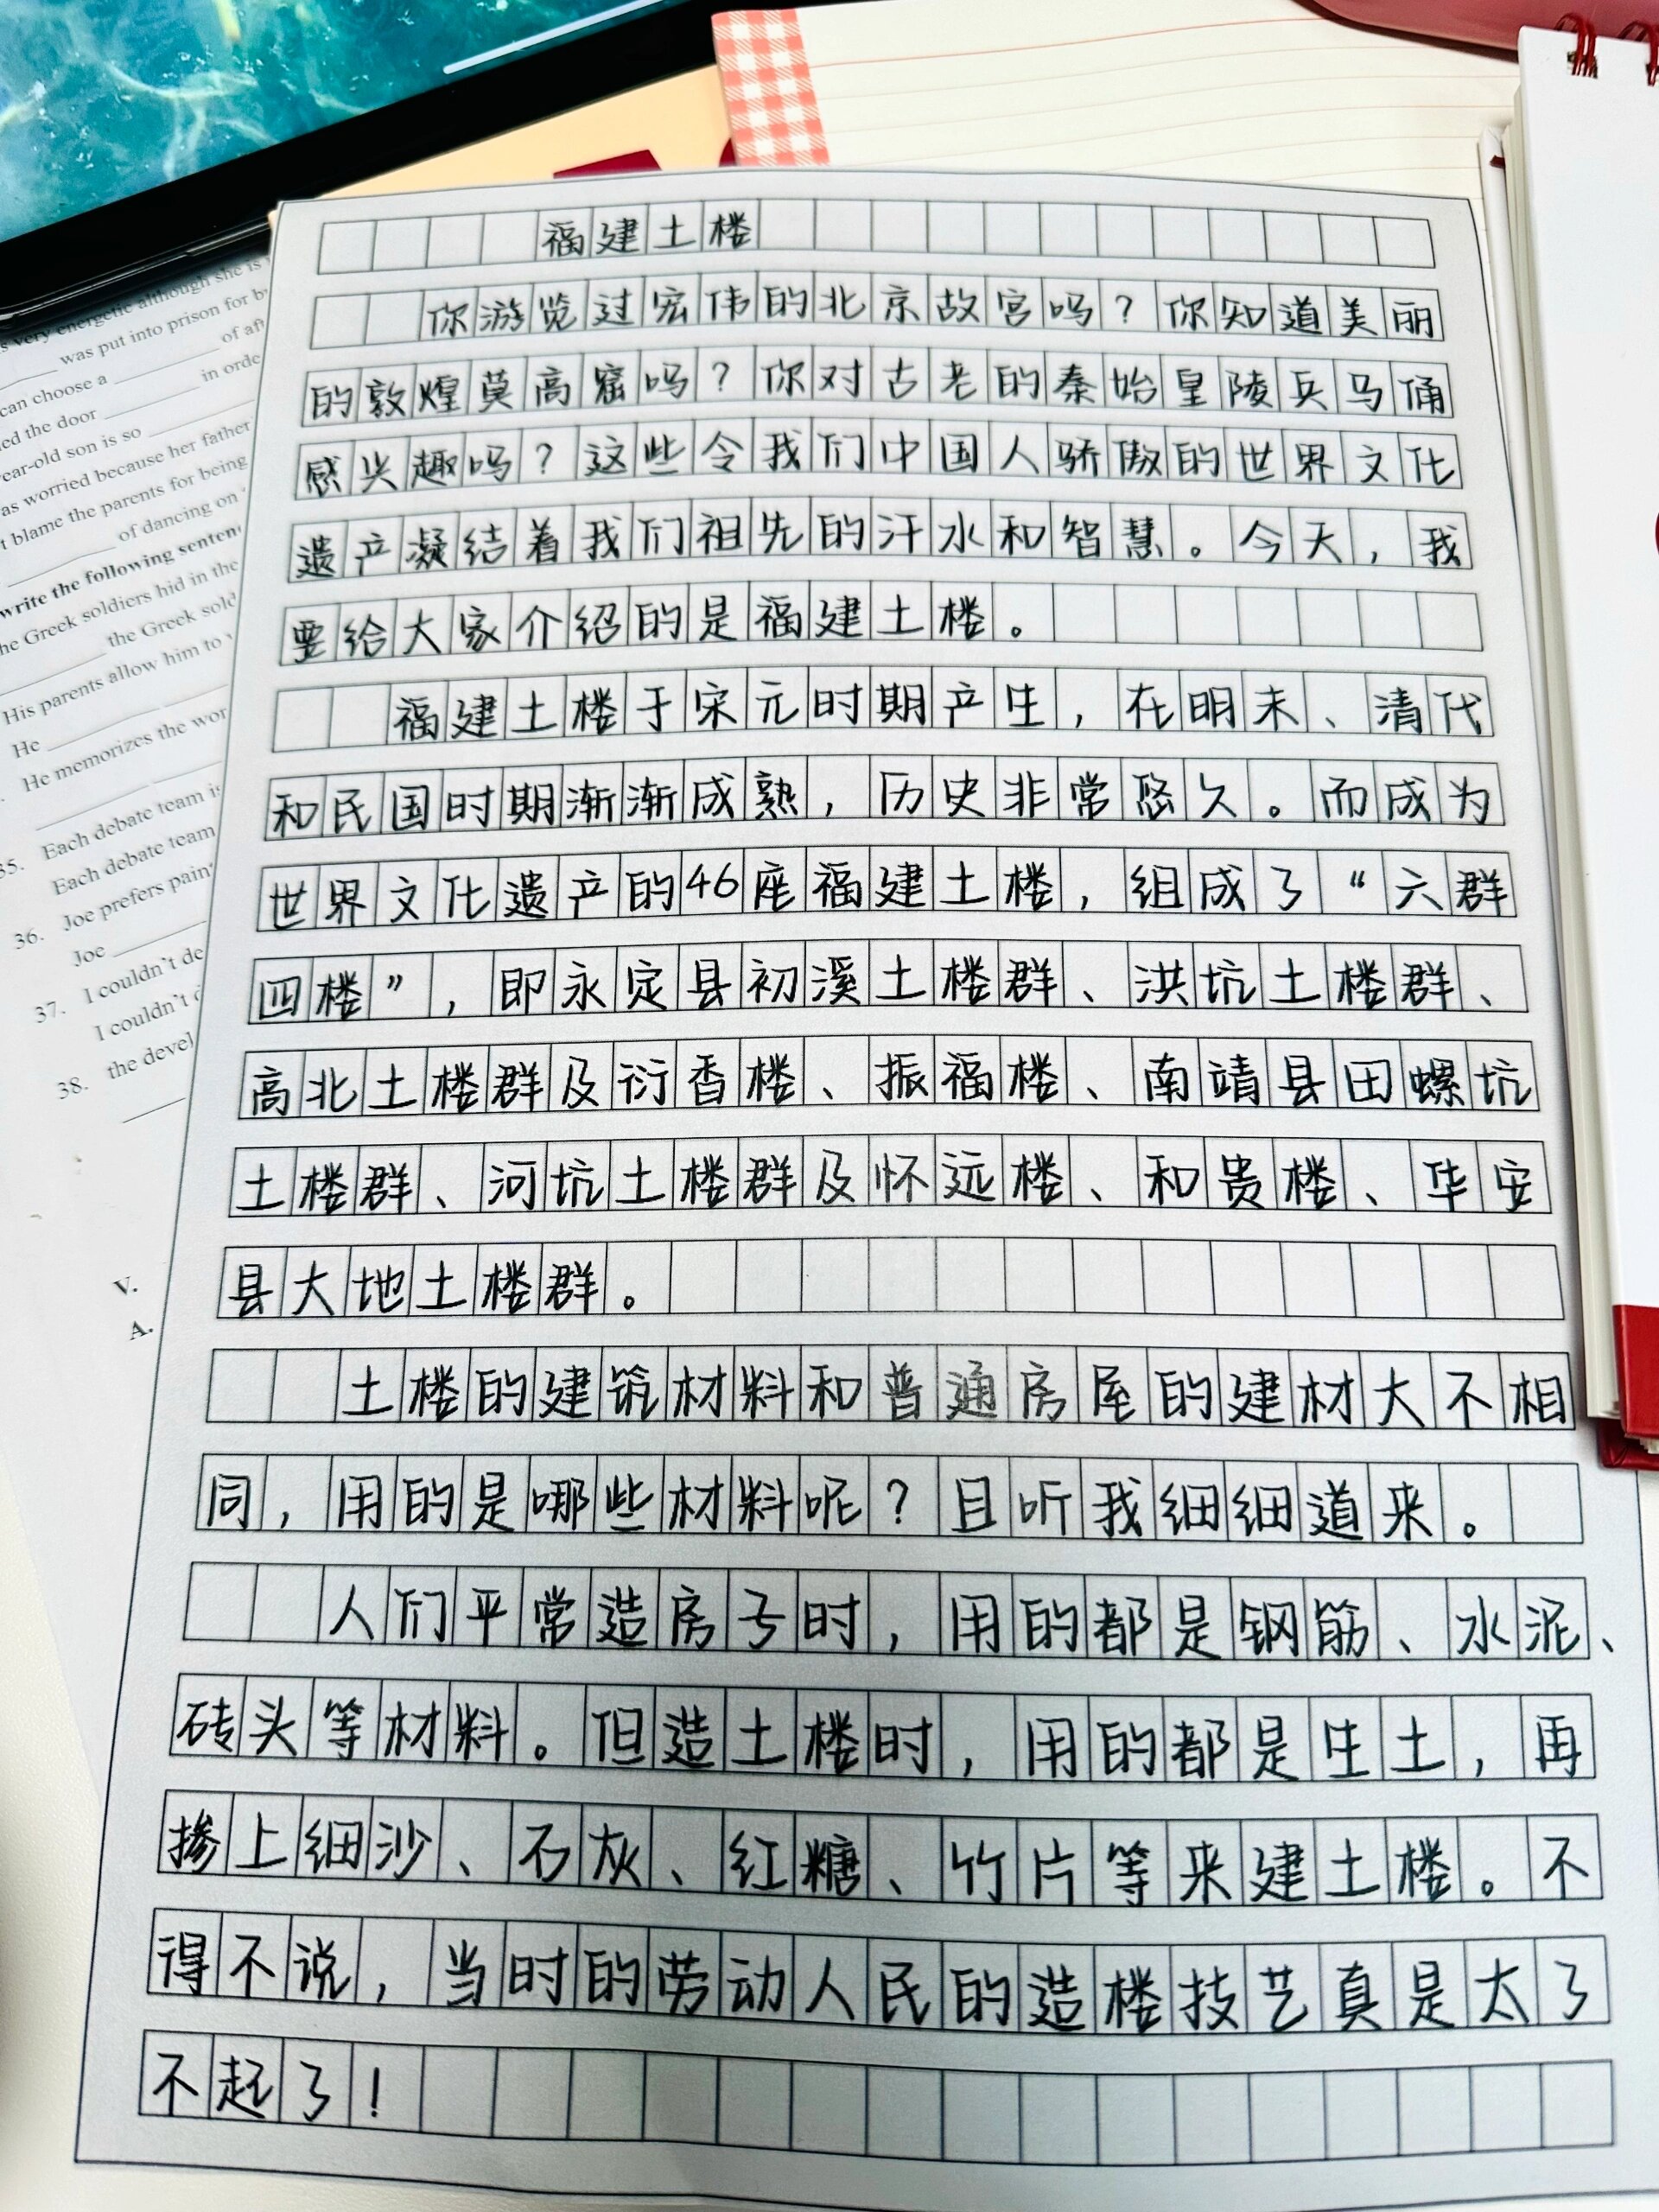 福建土楼
你游览过宏伟的北京故宫吗？你知道美丽
的敦煌莫高窟吗？你对古老的秦始皇陵兵马俑
感兴趣吗？这些令我们中国人骄傲的世界文化
遗产凝结着我们祖先的汗水和智慧。今天，我
要给大家介绍的是福建土楼。
福建土楼于宋元时期产生，在明末、清代
和民国时期渐渐成熟，历史非常悠久。而成为
世界文化遗产的46座福建土楼，组成了“六群
四楼”，即永定县初溪土楼群、洪坑土楼群、
高北土楼群及衍香楼、振福楼、南靖县田螺坑
土楼群、河坑土楼群及怀远楼、和贵楼、华安
县大地土楼群。
土楼的建筑材料和普通房屋的建材大不相
同，用的是哪些材料呢？且听我细细道来。
人们平常造房子时，用的都是钢筋、水泥、
砖头等材料。但造土楼时，用的都是生土，再
掺上细沙、石灰、红糖、竹片等来建土楼。不
得不说，当时的劳动人民的造楼技艺真是太了
不起了！
s very energetic although she is
was put into prison for b
can choose a ________ of aft
ed the door ________ in orde
ear-old son is so
as worried because her father
t blame the parents for being
________ of dancing on
write the following senten
he Greek soldiers hid in the
________ the Greek sold
His parents allow him to
He
He memorizes the wor
35. Each debate team is
Each debate team
36. Joe prefers pain
Joe
37. I couldn't de
I couldn't
38. the devel
V.
A.